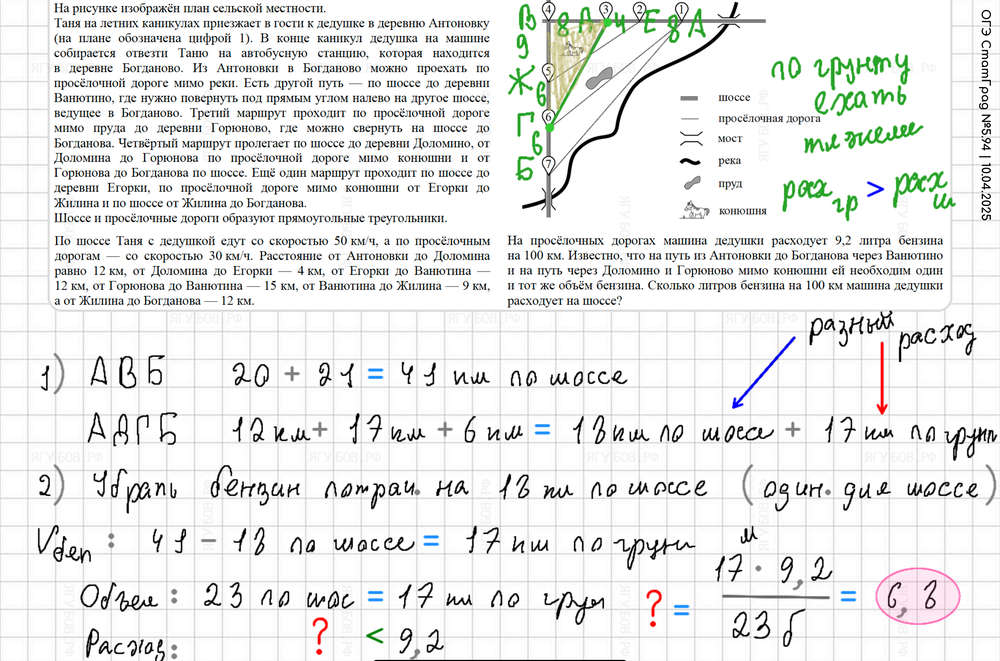 На рисунке изображён план сельской местности.
Таня на летних каникулах приезжает в гости к дедушке в деревню Антоновку
(на плане обозначена цифрой 1). В конце каникул дедушка на машине
собирается отвезти Таню на автобусную станцию, которая находится
в деревне Богданово. Из Антоновки в Богданово можно проехать по
просёлочной дороге мимо реки. Есть другой путь — по шоссе до деревни
Ванютино, где нужно повернуть под прямым углом налево на другое шоссе,
ведущее в Богданово. Третий маршрут проходит по просёлочной дороге
мимо пруда до деревни Горюново, где можно свернуть на шоссе до
Богданова. Четвёртый маршрут пролегает по шоссе до деревни Доломино, от
Доломина до Горюнова по просёлочной дороге мимо конюшни и от
Горюнова до Богданова по шоссе. Ещё один маршрут проходит по шоссе до
деревни Егорки, по просёлочной дороге мимо конюшни от Егорки до
Жилина и по шоссе от Жилина до Богданова.
Шоссе и просёлочные дороги образуют прямоугольные треугольники.
В 4 8 Д 3 4 2 Е 8 1 А
9
Ж 5
6
Г 6
6
Б 7
шоссе
просёлочная дорога
мост
река
пруд
конюшня
по грунту
ехать
тяжелее
расх гр > расх ш
ОГЭ СтатГрад №5,94 | 10.04.2025
По шоссе Таня с дедушкой едут со скоростью 50 км/ч, а по просёлочным
дорогам — со скоростью 30 км/ч. Расстояние от Антоновки до Доломина
равно 12 км, от Доломина до Егорки — 4 км, от Егорки до Ванютина —
12 км, от Горюнова до Ванютина — 15 км, от Ванютина до Жилина — 9 км,
а от Жилина до Богданова — 12 км.
На просёлочных дорогах машина дедушки расходует 9,2 литра бензина
на 100 км. Известно, что на путь из Антоновки до Богданова через Ванютино
и на путь через Доломино и Горюново мимо конюшни ей необходим один
и тот же объём бензина. Сколько литров бензина на 100 км машина дедушки
расходует на шоссе?
ЯГУБОВ.РФ
разный расход
1) АВБ 20 + 21 = 41 км по шоссе
АДГБ 12км + 17км + 6 км = 18км по шоссе + 17 км по грунт
2) Убрать бензин потрач. на 18 км по шоссе (один. для шоссе)
Vбен : 41 - 18 по шоссе = 17 км по грунт
Объем : 23 по шос = 17 км по грун
? = 17 · 9,2 / 23 = 6,8
Расход: ? < 9,2